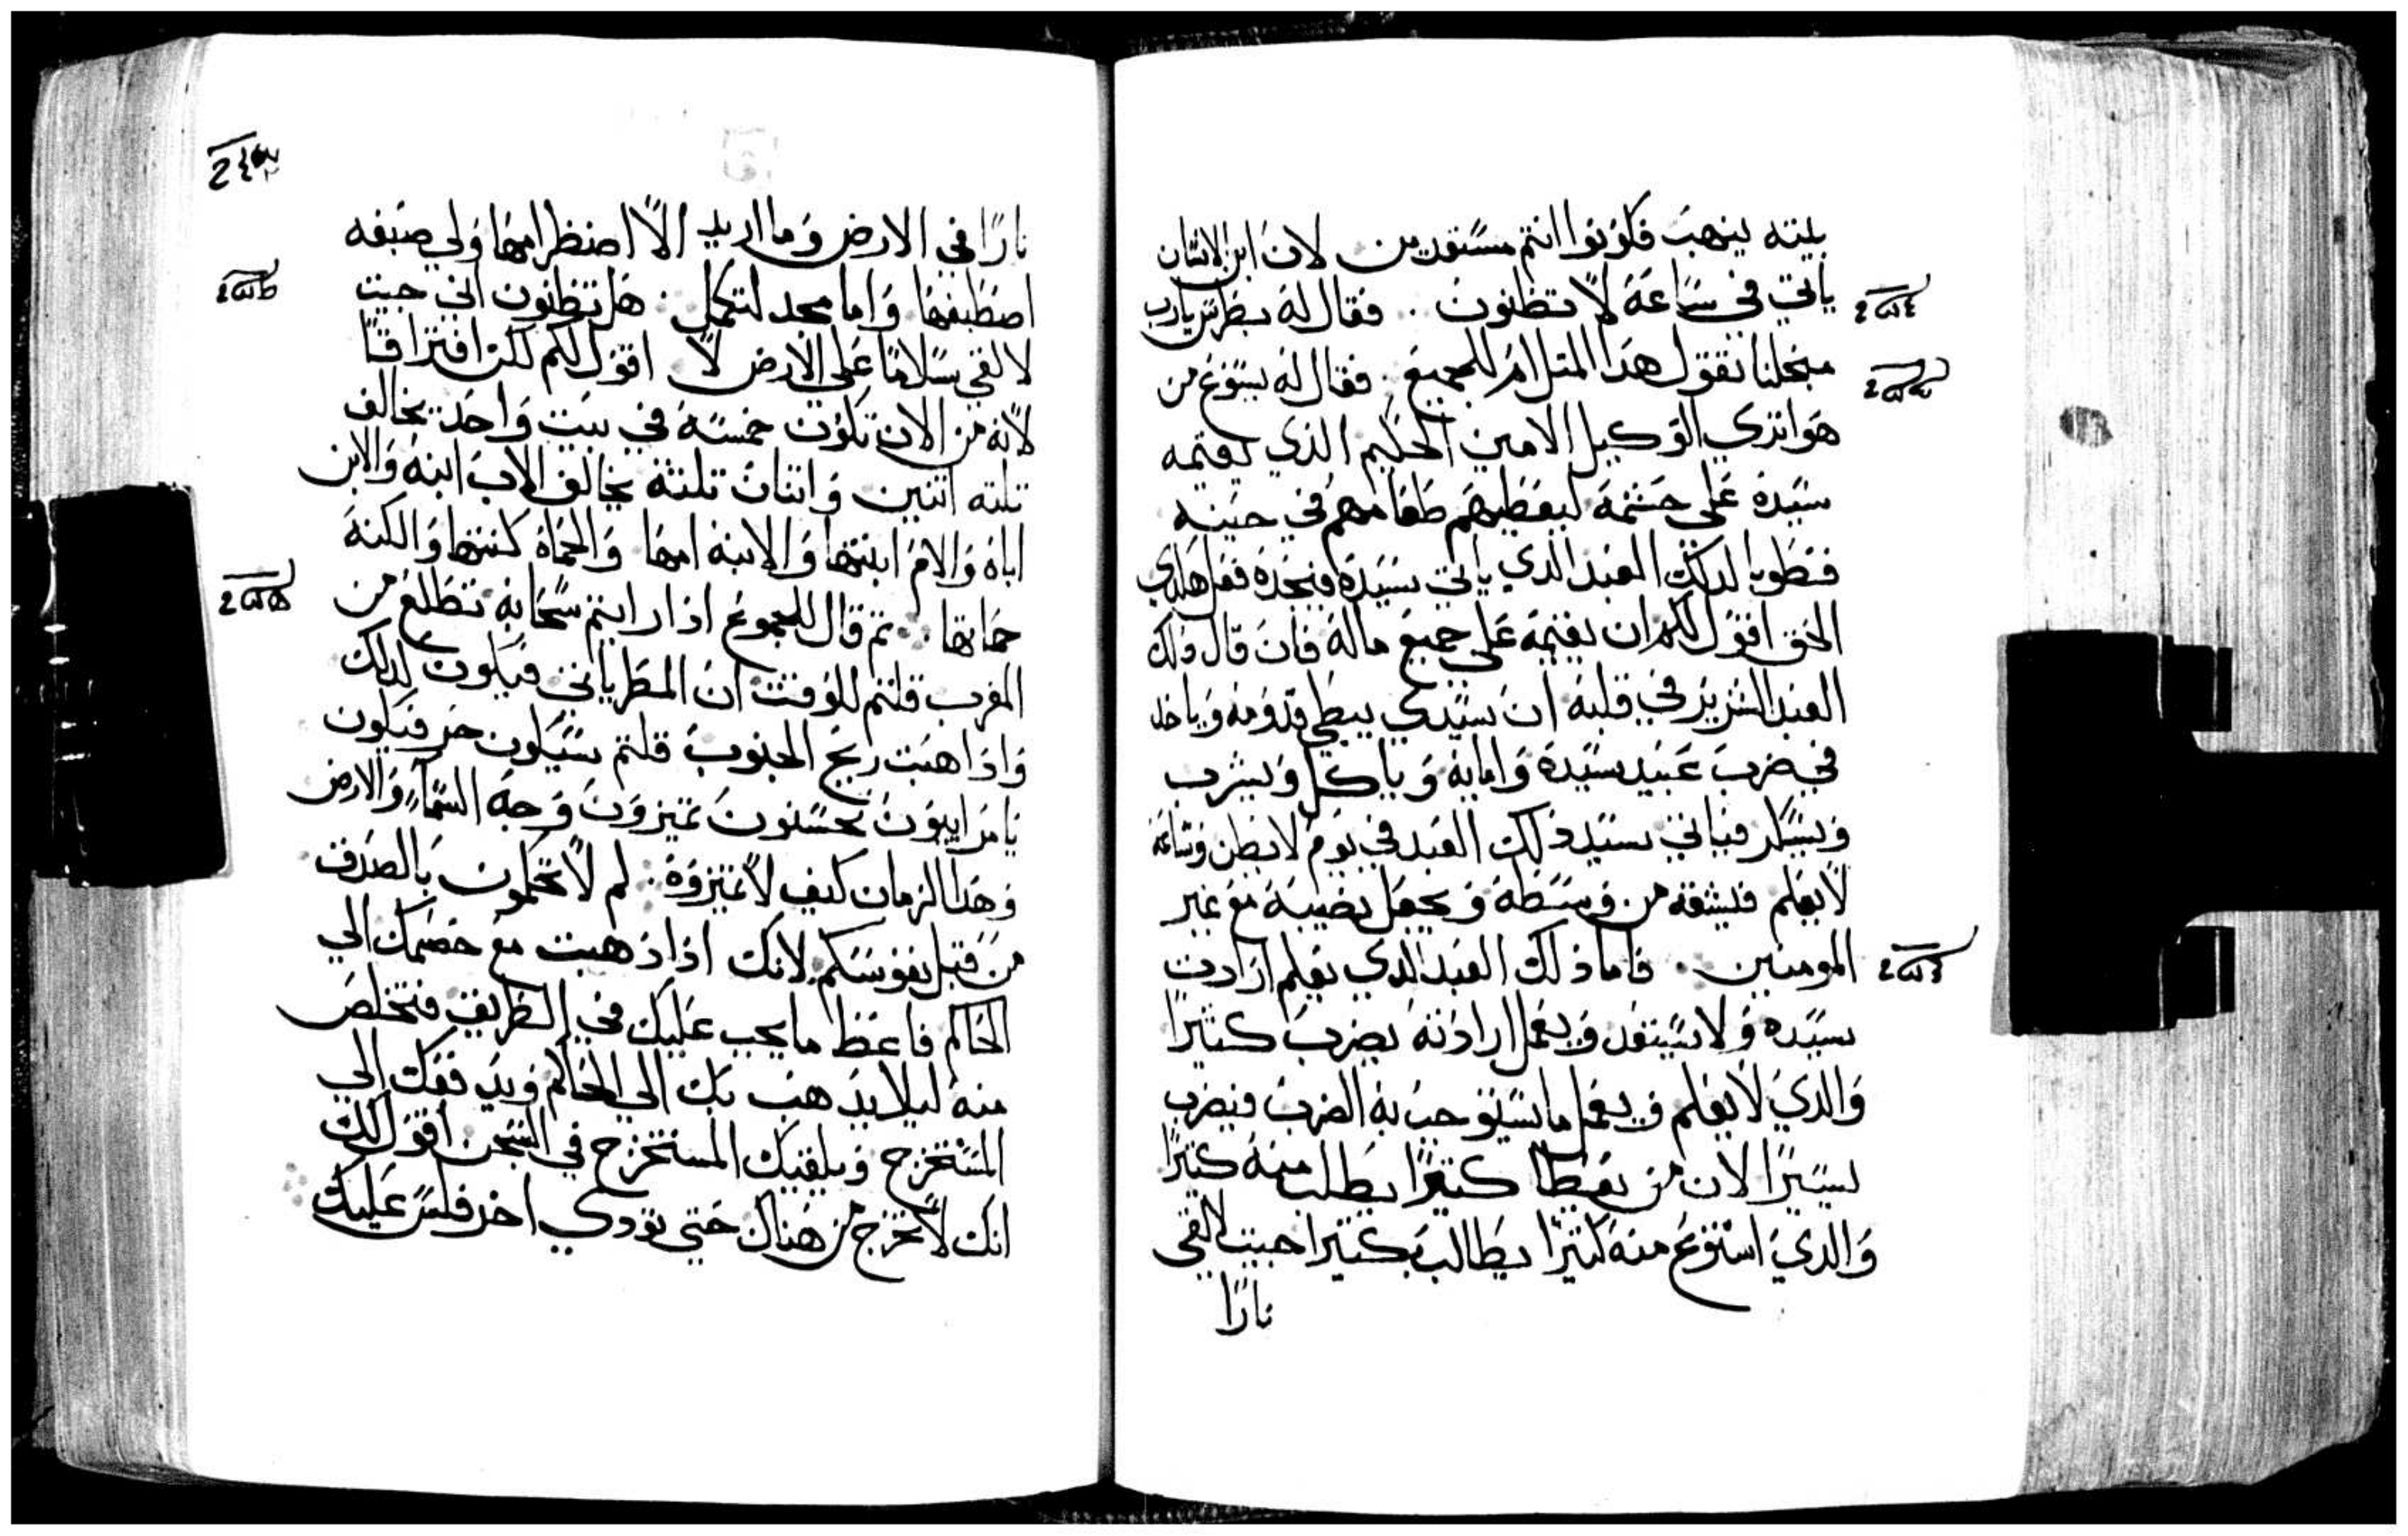 بيته ينهب فكونوا انتم مستعدين لان ابن الانسان
ياتي في ساعة لا تظنون . فقال له بطرس يارب
مجلنا تقول هذا المتل ام للجميع . فقال له يسوع من
هو اتري الوكيل الامين الحكيم الذي يقيمه
سيده علي حشمه ليعطيهم طعامهم في حينه
فطوبا لدلك العبد الدي ياتي سيده فيجده فعل هكدي
الحق اقول لكم ان يقيمه علي جميع ماله فان قال دلك
العبد الشرير في قلبه ان سيدي يبطي قدومه وياخد
في ضرب عبيد سيده وامايه وياكل ويشرب
ويسكر فياتي سيد دلك العبد في يوم لا يظن وساعة
لا يعلم فيشقه من وسطه ويجعل نصيبه مع غير
المومنين . فاما ذلك العبد الدي يعلم ارادت
سيده ولا يستعد ويعمل ارادته يضرب كثيرًا
والدي لا يعلم ويعمل ما يستوجب به الضرب فيضرب
يسيرًا لان من يعطا كتيرًا يطلب منه كتيرًا
والدي استودع منه كتيرًا يطالب بكتيرا جيت لالقي
نارًا
نارًا في الارض وما اريد الا اضطرامها ولي صبغه
اصطبغها وانا مجد لتكمل . هل تظنون اني جيت
لالقي سلامًا علي الارض لا اقول لكم لكن افتراقًا
لانه من الان تكون خمسة في بيت واحد يخالف
تلته اتنين واتنان تلتة يخالف الاب ابنه والابن
اباه والام ابنتها والابنه امها والحماه كنتها والكنه
حماتها . تم قال للجموع اذا رايتم سحابة تطلع من
المغرب قلتم للوقت ان المطر ياتي فيكون لدلك
واذا هبت ريح الجنوب قلتم سيكون حر فيكون
يا مراييون تحسنون تميزون وجه السماء والارض
وهذا الزمان كيف لا تميزوه . لم لا تحكمون بالصدق
من قبل نفوسكم لانك اذا ذهبت مع خصمك الي
الحاكم فاعط ما يجب عليك في الطريق فتخلص
منه ليلا يذهب بك الي الحاكم ويدفعك الي
المستخرج ويلقيك المستخرج في السجن اقول لك
انك لا تخرج من هناك حتي تودي اخر فلس عليك